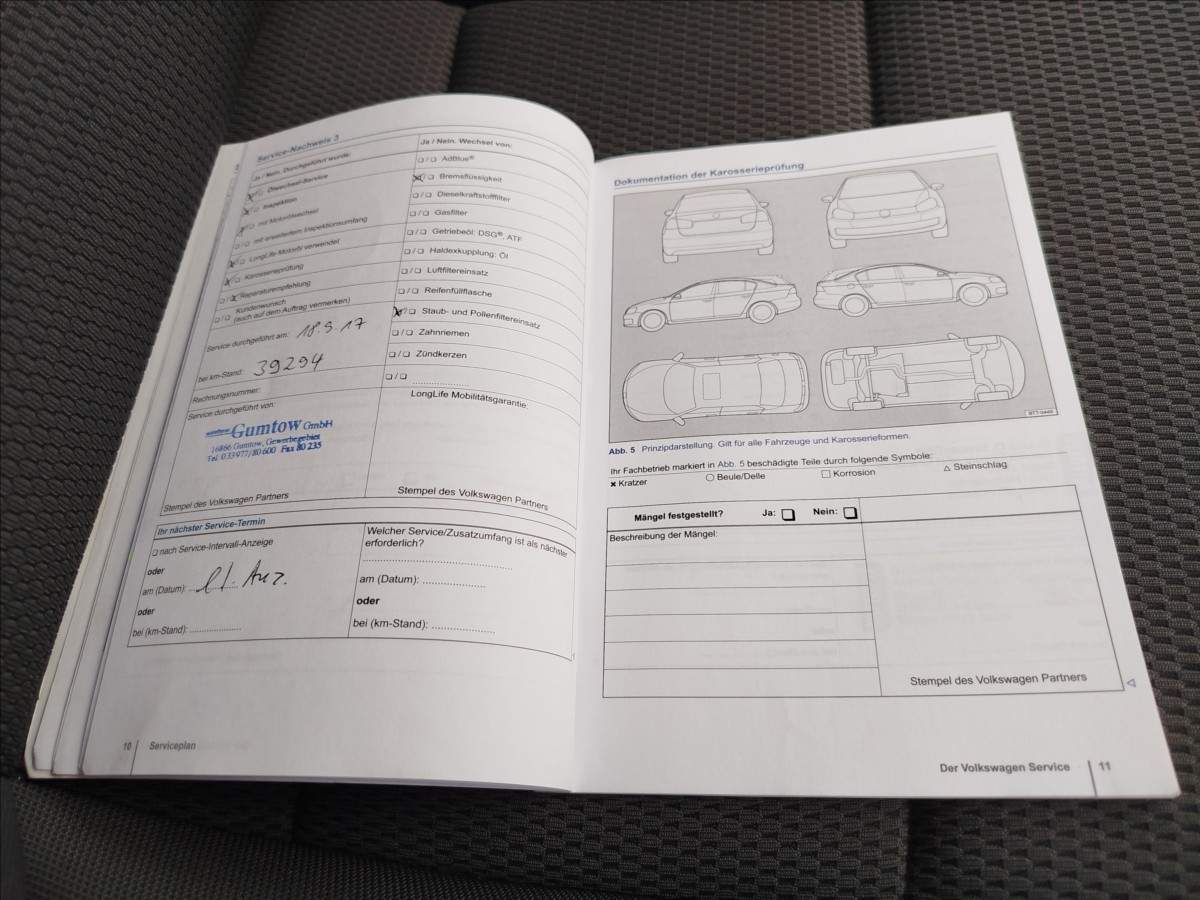 Service-Nachweis 3
Ja / Nein. Durchgeführt wurde:
Ölwechsel-Service
Inspektion
mit Motorölwechsel
mit erweitertem Inspektionsumfang
LongLife-Motoröl verwendet
Karosserieprüfung
Reparaturempfehlung
Kundenwunsch
(auch auf dem Auftrag vermerken)
Service durchgeführt am: 18.9.17
bei km-Stand: 39294
Rechnungsnummer:
Service durchgeführt von:
Gumtow GmbH
16866 Gumtow, Gewerbegebiet
Tel. 033977/80 600 Fax 80 235
Stempel des Volkswagen Partners
Ja / Nein. Wechsel von:
AdBlue®
Bremsflüssigkeit
Dieselkraftstofffilter
Gasfilter
Getriebeöl: DSG®, ATF
Haldexkupplung: Öl
Luftfiltereinsatz
Reifenfüllflasche
Staub- und Pollenfiltereinsatz
Zahnriemen
Zündkerzen
LongLife Mobilitätsgarantie:
Stempel des Volkswagen Partners
Ihr nächster Service-Termin
nach Service-Intervall-Anzeige
oder
am (Datum):
oder
bei (km-Stand):
Welcher Service/Zusatzumfang ist als nächster
erforderlich?
am (Datum):
oder
bei (km-Stand):
10 Serviceplan
Dokumentation der Karosserieprüfung
Abb. 5 Prinzipdarstellung. Gilt für alle Fahrzeuge und Karosserieformen.
Ihr Fachbetrieb markiert in Abb. 5 beschädigte Teile durch folgende Symbole:
Kratzer Beule/Delle Korrosion Steinschlag
Mängel festgestellt? Ja: Nein:
Beschreibung der Mängel:
Stempel des Volkswagen Partners
Der Volkswagen Service 11